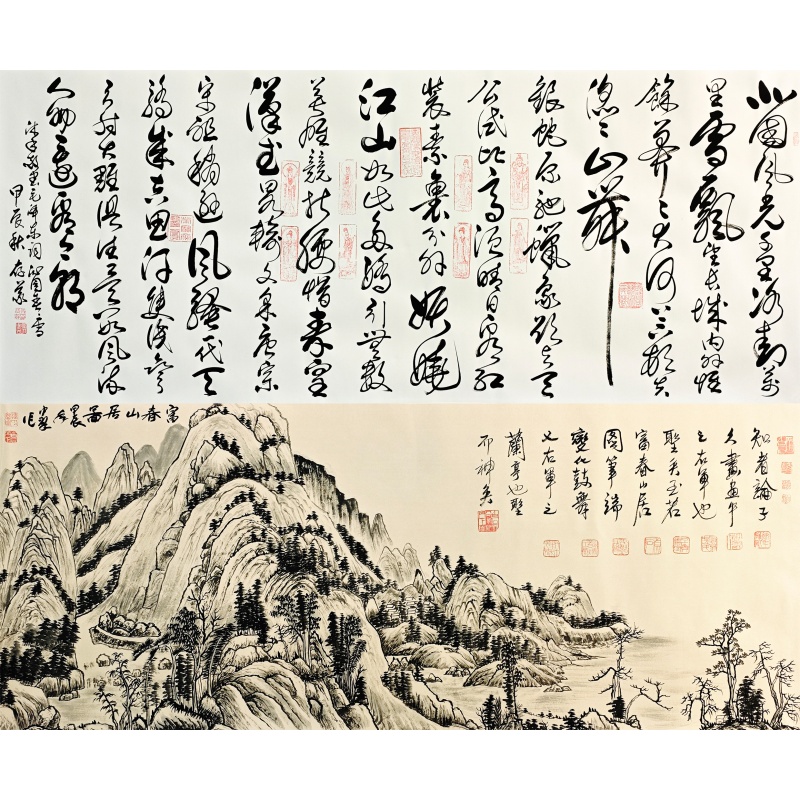 北國风光千里冰封萬
里雪飘望长城内外惟
餘莽莽大河上下顿失
滔滔山舞
银蛇原驰蠟象欲与天
公试比高须晴日看红
装素裹分外妖娆
江山如此多娇引無数
英雄競折腰惜秦皇
漢武略输文采唐宗
宋祖稍逊风骚一代天
骄成吉思汗只識弯
弓射大雕俱往矣数风流
人物還看今朝
毛泽东词沁园春雪
甲辰秋
富春山居圖
知者論子
久畫畫中
之右軍也
聖矣至若
富春山居
圖筆端
變化鼓舞
又右軍之
蘭亭也聖
而神矣